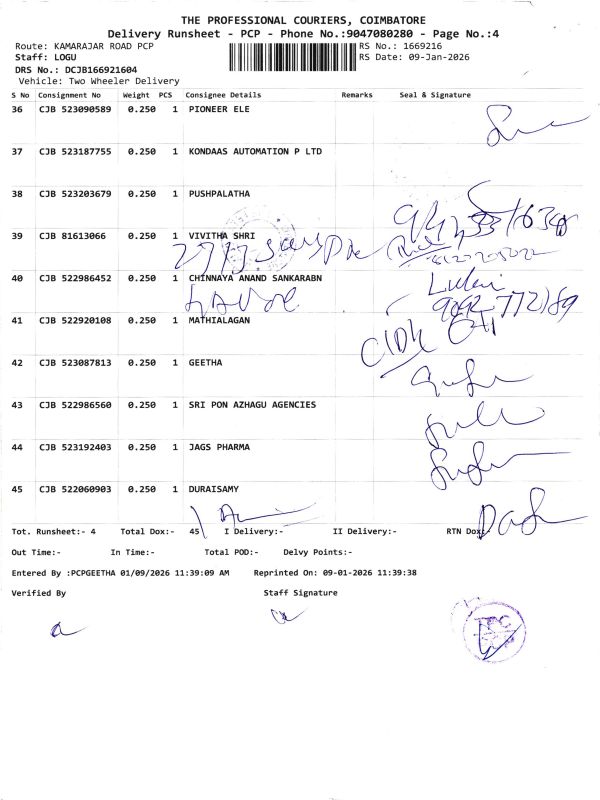 THE PROFESSIONAL COURIERS, COIMBATORE
Delivery Runsheet - PCP - Phone No.:9047080280 - Page No.:4
Route: KAMARAJAR ROAD PCP RS No.: 1669216
Staff: LOGU RS Date: 09-Jan-2026
DRS No.: DCJB166921604
Vehicle: Two Wheeler Delivery
S No Consignment No Weight PCS Consignee Details Remarks Seal & Signature
36 CJB 523090589 0.250 1 PIONEER ELE
37 CJB 523187755 0.250 1 KONDAAS AUTOMATION P LTD
38 CJB 523203679 0.250 1 PUSHPALATHA
39 CJB 81613066 0.250 1 VIVITHA SHRI
40 CJB 522986452 0.250 1 CHINNAYA ANAND SANKARABN
41 CJB 522920108 0.250 1 MATHIALAGAN
42 CJB 523087813 0.250 1 GEETHA
43 CJB 522986560 0.250 1 SRI PON AZHAGU AGENCIES
44 CJB 523192403 0.250 1 JAGS PHARMA
45 CJB 522060903 0.250 1 DURAISAMY
Tot. Runsheet:- 4 Total Dox:- 45 I Delivery:- II Delivery:- RTN Dox
Out Time:- In Time:- Total POD:- Delvy Points:-
Entered By :PCPGEETHA 01/09/2026 11:39:09 AM Reprinted On: 09-01-2026 11:39:38
Verified By Staff Signature